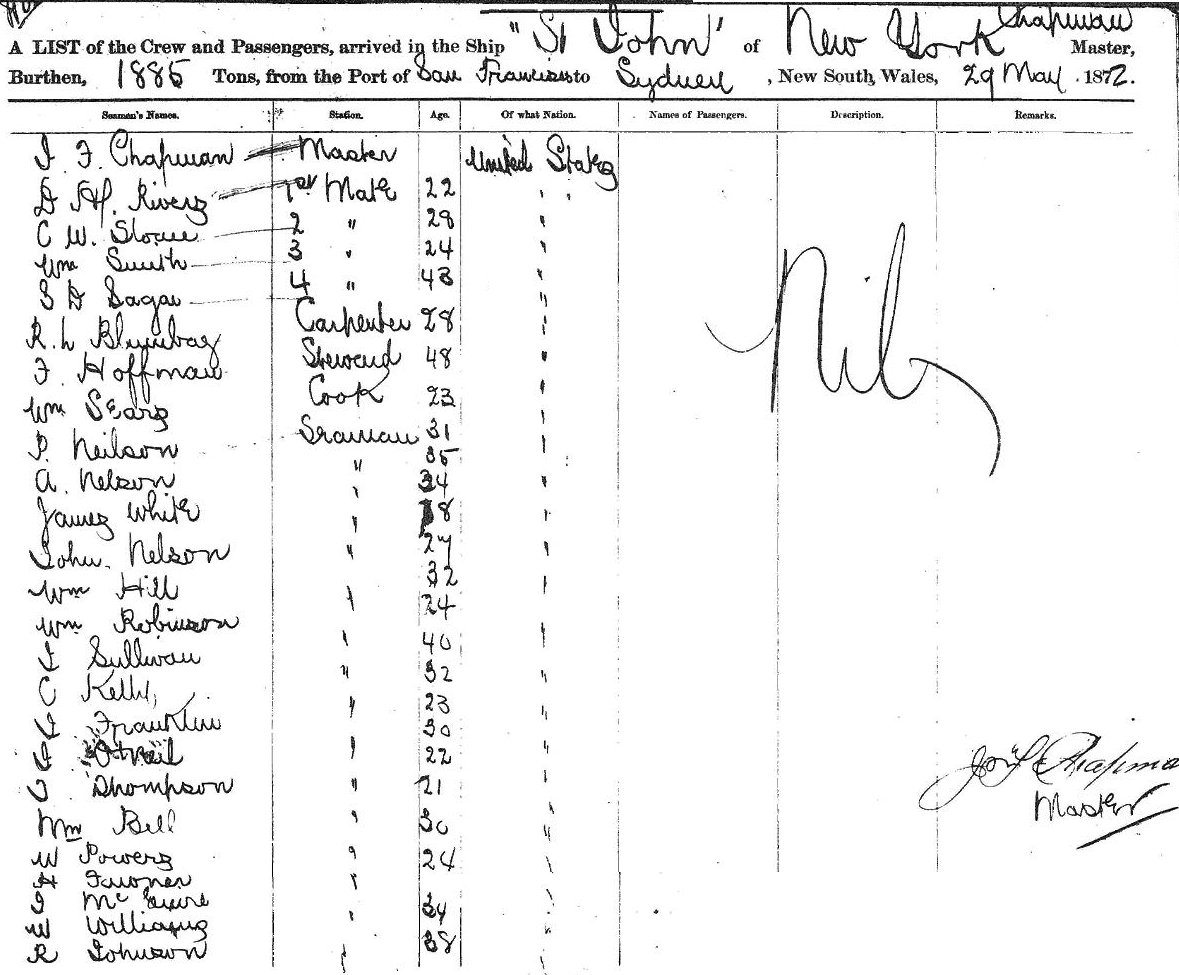 Chapman
A LIST of the Crew and Passengers, arrived in the Ship "St John" of New York Master,
Burthen, 1885 Tons, from the Port of San Francisco to Sydney, New South Wales, 29 May 1872.
Seaman's Names. Station. Age. Of what Nation. Names of Passengers. Description. Remarks.
J. F. Chapman Master United States
D H. Rivers 1st Mate 22 " "
C W. 2 " 28 "
Wm Smith 3 " 24 "
S D Sagar 4 " 43 "
R. L Carpenter 28 "
F. Hoffman Steward 48 "
Wm Sears Cook 23 "
P. Neilson Seaman 31 "
A. Nelson " 35 "
James White " 34 "
John Nelson " 18 "
Wm Hill " 27 "
Wm Robinson " 32 "
J Sullivan " 24 "
C Kelly " 40 "
J Franklin " 32 "
J O'Neil " 23 "
J Thompson " 30 "
Wm Bell " 22 "
W Powers " 21 "
H " 30 "
J McGuire " 24 "
W Williams " 34 "
R Johnson " 38 "
Nil
Jas F Chapman
Master